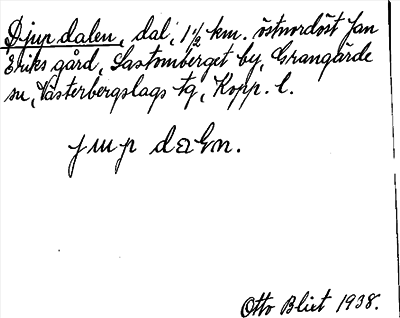 Djup dalen, dal, 1 1/2 km. östnordöst Jan
Eriks gård, Saxtomberget by, Grangärde
sn, Västerbergslags tg, Kopp. l.
jup daln.
Otto Blixt 1938.